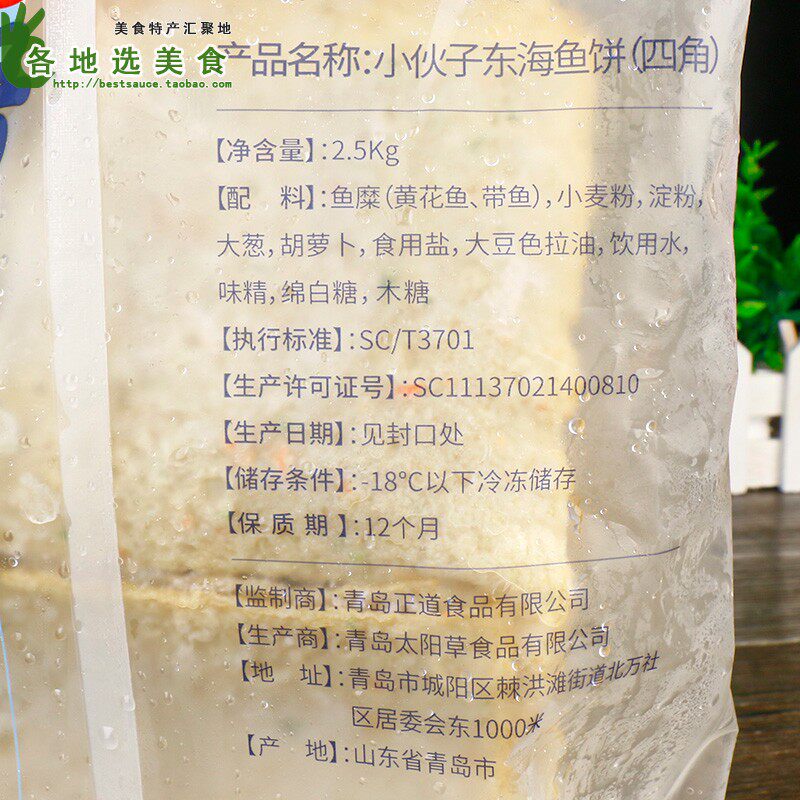 美食特产汇聚地
各地选美食
http://bestsauce.taobao.com
产品名称：小伙子东海鱼饼（四角）
【净含量】：2.5Kg
【配 料】：鱼糜（黄花鱼、带鱼），小麦粉，淀粉，
大葱，胡萝卜，食用盐，大豆色拉油，饮用水，
味精，绵白糖，木糖
【执行标准】：SC/T3701
【生产许可证号】：SC11137021400810
【生产日期】：见封口处
【储存条件】：-18℃以下冷冻储存
【保 质 期】：12个月
【监制商】：青岛正道食品有限公司
【生产商】：青岛太阳草食品有限公司
【地 址】：青岛市城阳区棘洪滩街道北万社
区居委会东1000米
【产 地】：山东省青岛市